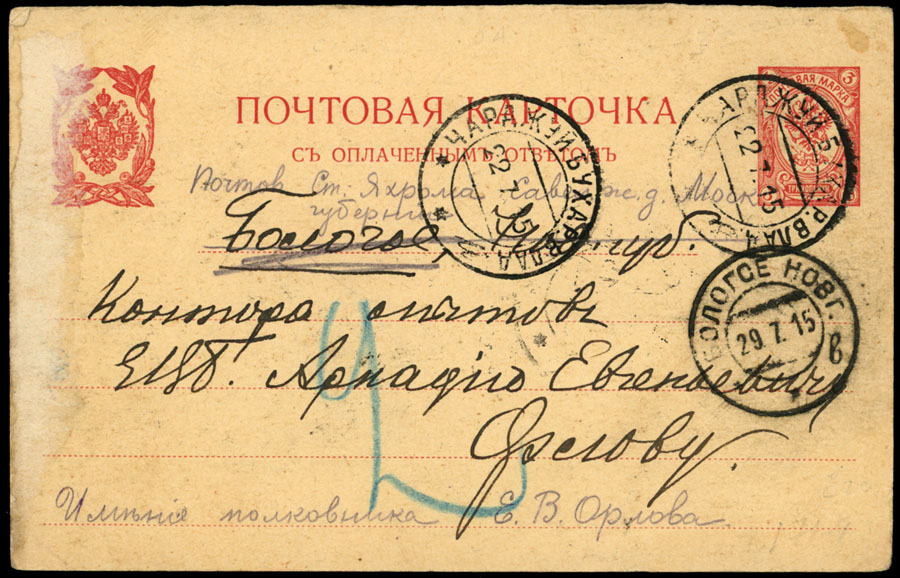 ПОЧТОВАЯ КАРТОЧКА
СЪ ОПЛАЧЕННЫМЪ ОТВѢТОМЪ
МАРКА
3
ЧАРДЖУЙ БУХАР. ВЛАД.
22 7 15
ЧАРДЖУЙ БУХАР. ВЛАД.
22 7 15
Почтов Ст. Яхрома ж. д. Моск
губернии
Бологое, губ.
БОЛОГОЕ НОВГ.
29. 7. 15
в
Контора счетовъ
Аркадію Евгеньевичу
Орлову.
Имѣніе полковника Е. В. Орлова